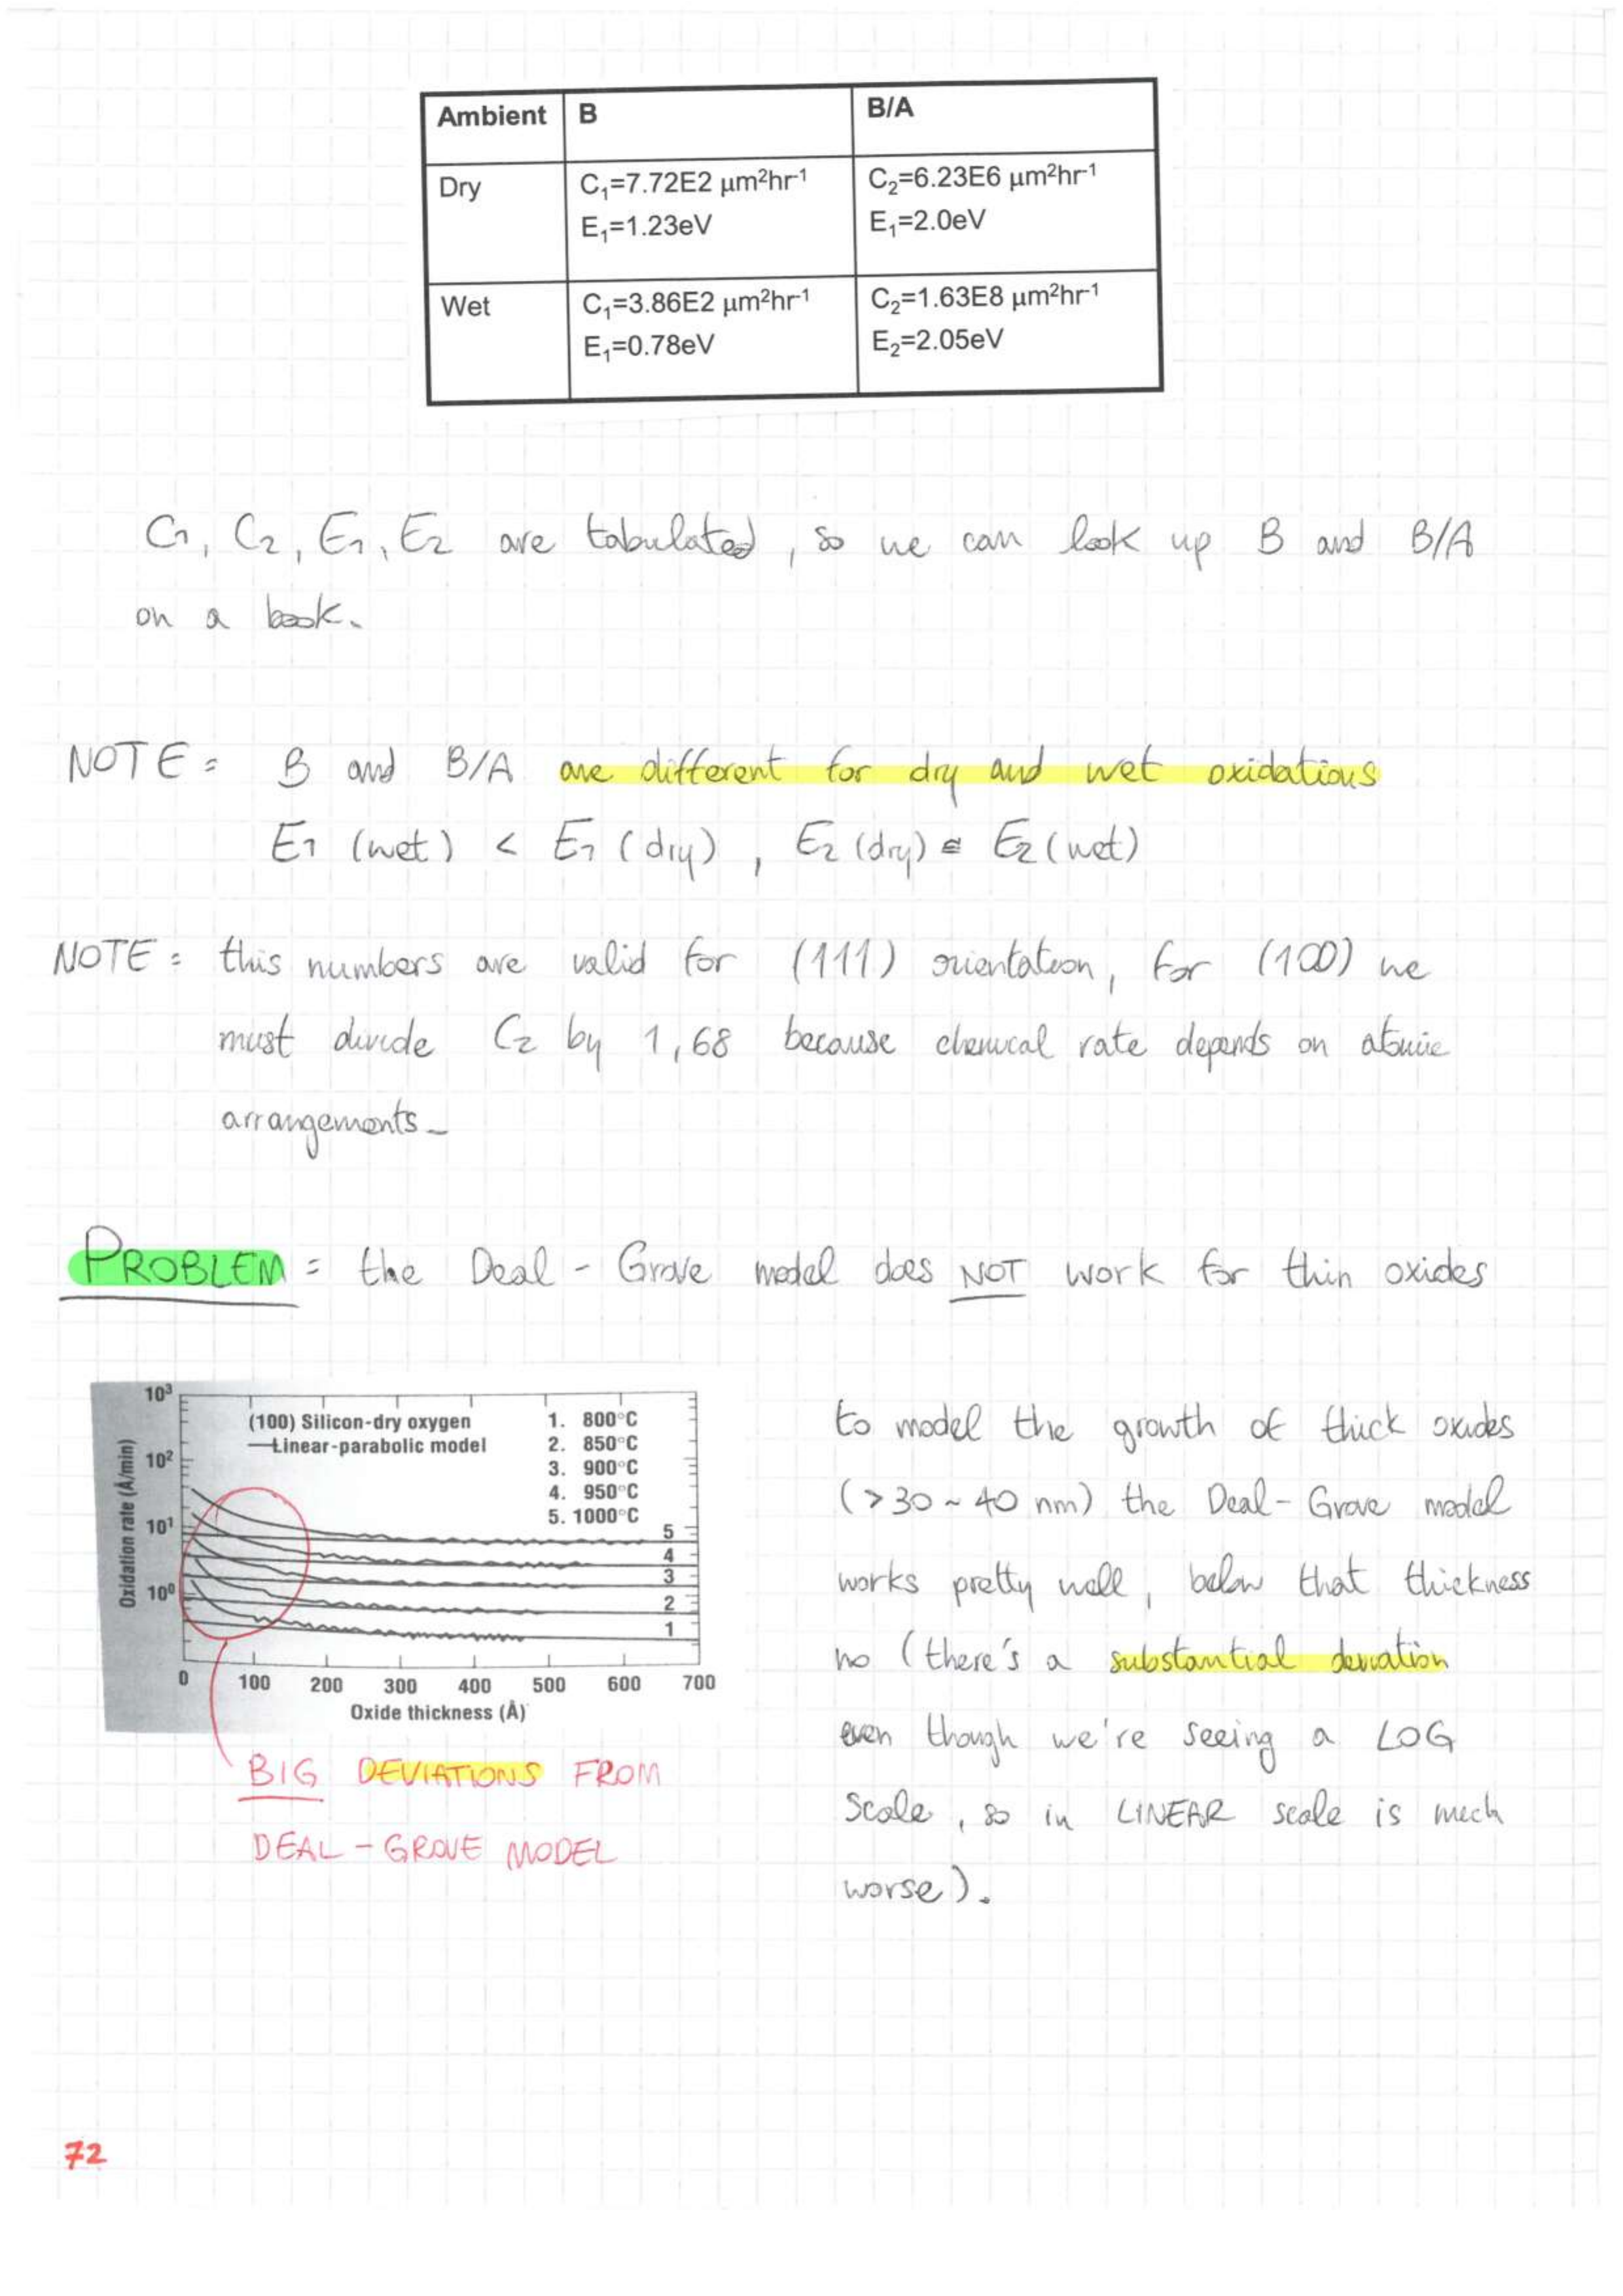 Ambient B B/A
Dry C₁=7.72E2 μm²hr⁻¹ C₂=6.23E6 μm²hr⁻¹
E₁=1.23eV E₁=2.0eV
Wet C₁=3.86E2 μm²hr⁻¹ C₂=1.63E8 μm²hr⁻¹
E₁=0.78eV E₂=2.05eV
C1, C2, E1, E2 are tabulated, so we can look up B and B/A
on a book.
NOTE: B and B/A are different for dry and wet oxidations
E1 (wet) < E1 (dry), E2 (dry) ≅ E2 (wet)
NOTE: this numbers are valid for (111) orientation, for (100) we
must divide C2 by 1,68 because chemical rate depends on atomic
arrangements-
PROBLEM: the Deal-Grove model does NOT work for thin oxides
10³
10²
10¹
10⁰
Oxidation rate (Å/min)
(100) Silicon-dry oxygen
Linear-parabolic model
1. 800°C
2. 850°C
3. 900°C
4. 950°C
5. 1000°C
5
4
3
2
1
0 100 200 300 400 500 600 700
Oxide thickness (Å)
BIG DEVIATIONS FROM
DEAL-GROVE MODEL
to model the growth of thick oxides
(>30~40 nm) the Deal-Grove model
works pretty well, below that thickness
no (there's a substantial deviation
even though we're seeing a LOG
scale, so in LINEAR scale is much
worse).
72